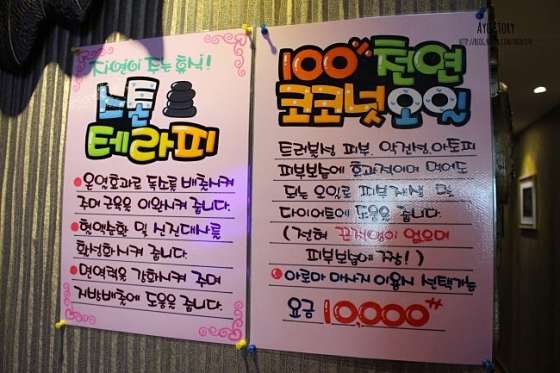 AYO'STORY
자연이 주는 휴식!
스톤
테라피
온열효과로 독소를 배출시켜
주며 근육을 이완시켜 줍니다.
혈액순환 및 신진대사를
활성화시켜 줍니다.
면역력을 강화시켜 주며
지방배출에 도움을 줍니다.
100% 천연
코코넛오일
트러블성 피부, 악건성, 아토피
피부보습에 효과적이며 먹어도
되는 오일로 피부재생 및
다이어트에 도움을 줍니다.
(전혀 끈적임이 없으며
피부보습에 짱!)
아로마 마사지 이용시 선택가능
요금 10,000원